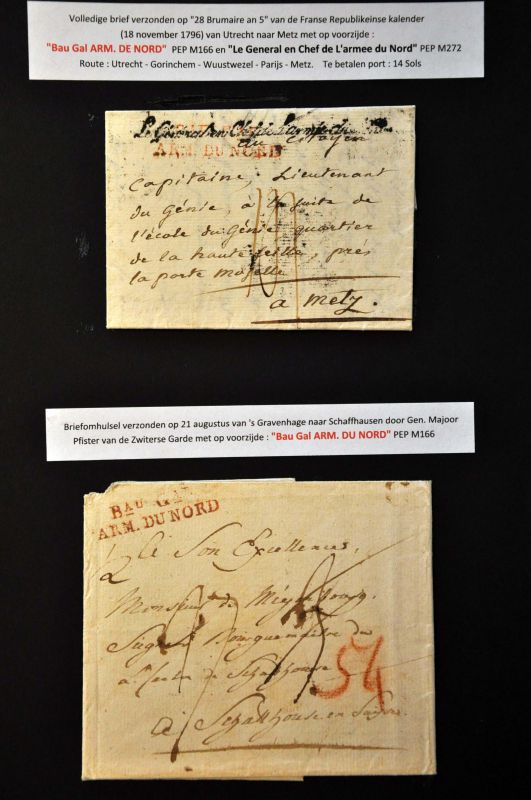 Volledige brief verzonden op "28 Brumaire an 5" van de Franse Republikeinse kalender
(18 november 1796) van Utrecht naar Metz met op voorzijde :
"Bau Gal ARM. DE NORD" PEP M166 en "Le General en Chef de L'armee du Nord" PEP M272
Route : Utrecht - Gorinchem - Wuustwezel - Parijs - Metz. Te betalen port : 14 Sols
Le Général en Chef de l'armée du
ARM. DU NORD
au Citoyen
Capitaine, Lieutenant
du génie, à la suite de
l'école du génie quartier
de la haute Seille, près
la porte mozelle
a metz.
Briefomhulsel verzonden op 21 augustus van 's Gravenhage naar Schaffhausen door Gen. Majoor
Pfister van de Zwiterse Garde met op voorzijde : "Bau Gal ARM. DU NORD" PEP M166
BAU GAL
ARM. DU NORD
Son Excellence,
Monsieur de
à Schaffhouse en Suisse
54